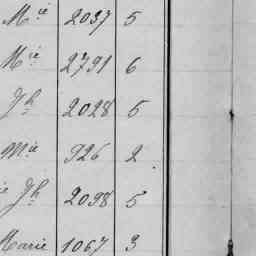 Mie 2037 5
Mie 2791 6
Jh 2028 5
Mie 926 2
ie Jh 2098 5
Marie 1067 3